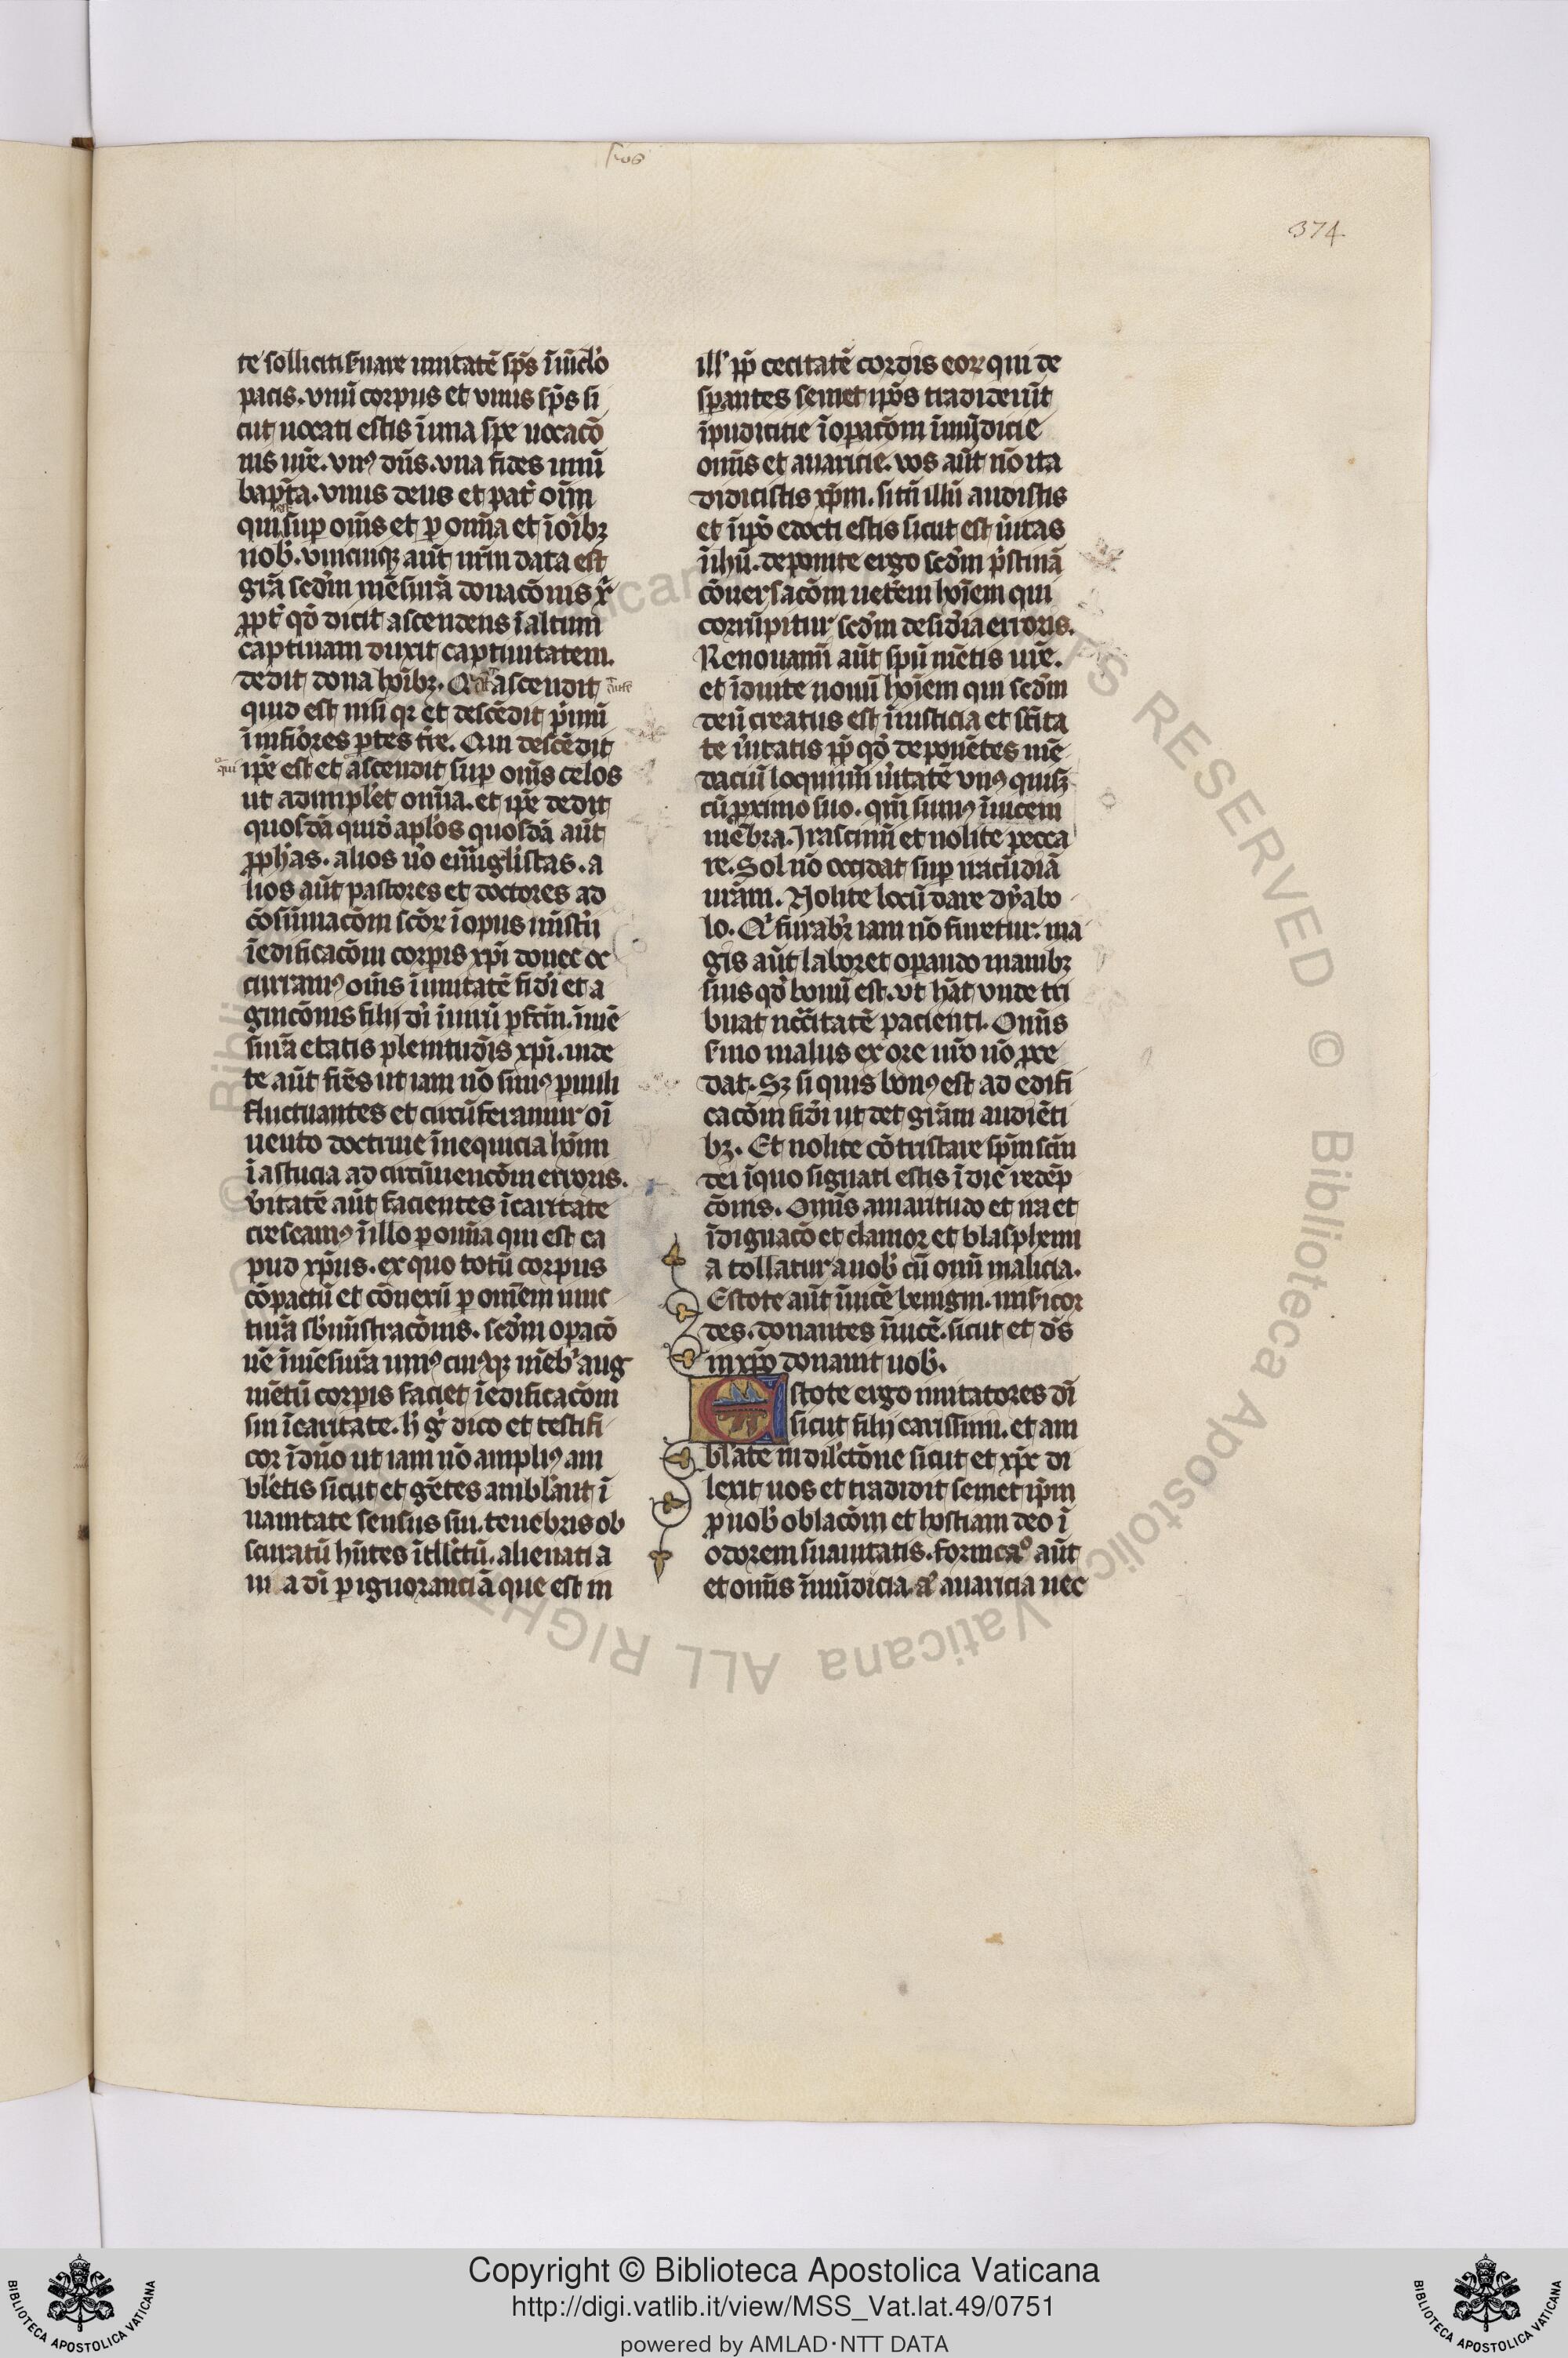 ſios
374
te solliciti s̄uare unitatē sp̄s ī uīcl̓o
pacis. vnū corpus et vnus sp̄s si
cut uocati estis ī una spe uocacō
nis ur̄e. vnꝰ dn̄s. vna fides unū
bapt̄a. vnus deus et pat̓ oīm
qui sup om̄s et p om̄ia et ī oībꝫ
nob̓. vnicuiqꝫ aūt nr̄m data est
gr̄a scd̄m mēsurā donacōnis x̓
ꝓpt̓ qđ dicit ascendens ī altum
captiuam duxit captiuitatem.
dedit dona hoībꝫ. Qđ at̄ ascendit
quid est nisi qꝛ et descēdit p̓mū
ī inferiōres ptes tr̄e. Qui descēdit
qui ip̄e est et ascendit sup om̄s celos
ut adimpl̓et om̄ia. et ip̄e dedit
quosdā quid̓ apl̓os quosdā aūt
ꝓph̓as. alios u̓o eūuglīstas. a
lios aūt pastores et doctores ad
cōsūmacōm scōꝝ ī opus mīst̓ii
ī edificacōm corpis xp̄i donec oc
curramꝰ om̄s ī unitatē fid̓i et a
gnicōnis filij dī ī uirū pfc̄m. ī mē
surā etatis plenitud̓is xp̄i. 
 aūt  ut iam nō simꝰ puuli
fluctuantes et circūferamur oī
uento doctrine ī nequicia hoīm
ī astucia ad circūuencōm erroris.
v̓itatē aūt facientes ī caritate
crescamꝰ ī illo p om̄ia qui est ca
pud xp̄us. ex quo totū corpus
cōpactū et cōnexū p om̄em iunc
turā sb̓mīstracōnis. scd̄m opacō
nē ī mēsurā uniꝰ cuiꝰqꝫ mēb̓ aug
mētū corpis faciet ī edificacōm
sui ī caritate. h̓ g̓ dico et testifi
cor ī dn̄o ut iam nō ampliꝰ am
bl̓etis sicut et gētes ambl̓ant ī
uanitate sensus sui. tenebris ob
scuratū hn̄tes ītll̓ctū. alienati a
ui a dī p ignoranciā que est in
ill̓ ꝓp̄ cecitatē cordis eoꝝ qui de
spantes semet ip̄os tradiderūt
īpudicitie ī opacōm īmūdicie
om̄is et auaricie. vos aūt nō ita
didicistis xp̄m. si tn̄ illū audistis
et ī ip̄o edocti estis sicut est ūitas
ī ih̄u. deponite ergo scd̄m p̓stinā
cōuersacōm uet̓em hoīem qui
corrūpitur scd̄m desid̓ia erroris.
Renouamī aūt spū mētis ur̄e.
et īduite nouū hoīem qui scd̄m
deū creatus est ī iusticia et sc̄ita
te ūitatis ꝓp̄ qđ deponētes mē
daciū loquimī ūitatē vnꝰ quisqꝫ
cū pximo suo. qm̄ sumꝰ īuicem
mēbra. Irascimī et nolite pecca
re. Sol nō occidat sup iracūdiā
ur̄am. Nolite locū dare dyabo
lo. Q̓ furabr̓ iam nō furetur. ma
gis aūt laboret opando manibꝫ
suis qđ bonū est. ut hāt unde tri
buat nēcc̄itatē pacienti. Om̄is
s̄mo malus ex ore ur̄o nō ꝓce
dat. Sꝫ si quis bonꝰ est ad edifi
cacōm fid̓i ut det gr̄am audiēti
bꝫ. Et nolite cōtristare spm̄ scm̄
dei ī quo signati estis ī diē redēp
cōnis. Om̄is amaritudo et ira et
īdignacō et clamor et blasphemi
a tollatur a uob̓ cū om̄i malicia.
Estote aūt īuicē benigni. mis̄icor
des. donantes īuicē. sicut et d̄s
in xp̄o donauit uob̓.
Estote ergo imitatores dī
sicut filij carissimi. et am
bl̓ate in dil̓ctōne sicut et xp̄c di
lexit uos et tradidit semet ip̄m
p uob̓ oblacōm et hostiam deo ī
odorem suauitatis. fornicac̓o aūt
et om̄is īmūdicia. a̓ auaricia nec
Copyright © Biblioteca Apostolica Vaticana
http://digi.vatlib.it/view/MSS_Vat.lat.49/0751
powered by AMLAD·NTT DATA
BIBLIOTECA APOSTOLICA VATICANA
BIBLIOTECA APOSTOLICA VATICANA